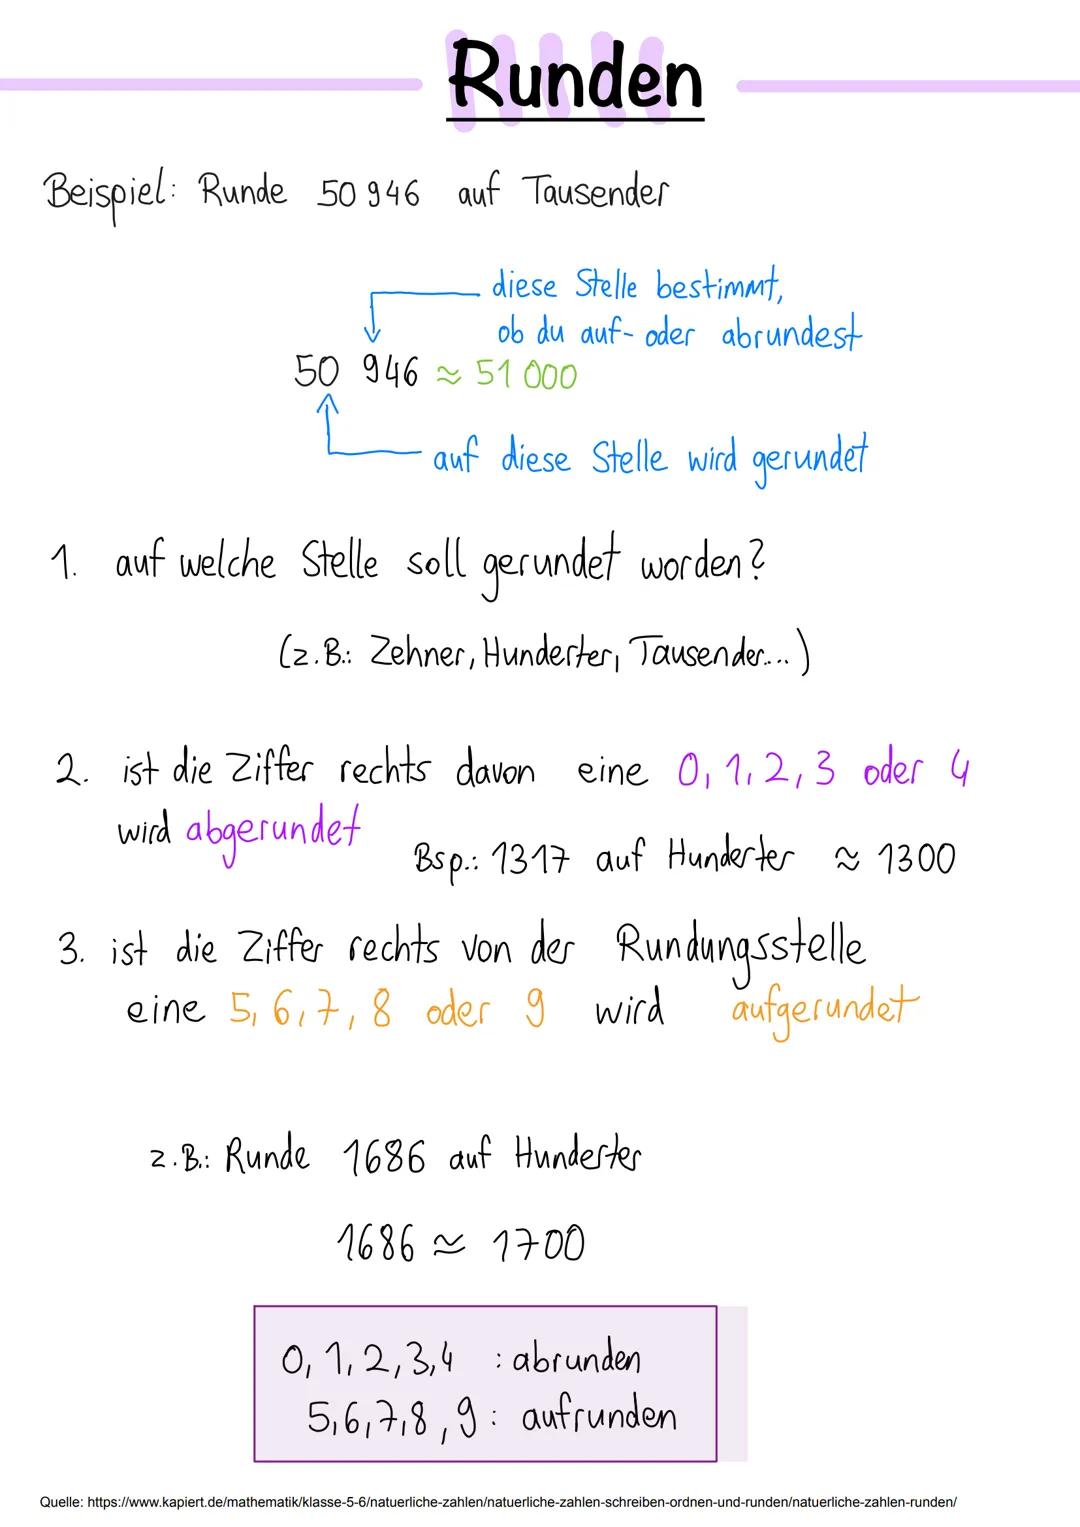 Runden
Beispiel: Runde 50 946 auf Tausender
diese Stelle bestimmt,
ob du auf- oder abrundest
50 946 ≈ 51 000
auf diese Stelle wird gerundet
1. auf welche Stelle soll gerundet worden?
(z.B.: Zehner, Hunderter, Tausender....)
2. ist die Ziffer rechts davon eine 0, 1, 2, 3 oder 4
wird abgerundet
Bsp.: 1317 auf Hunderter ≈ 1300
3. ist die Ziffer rechts von der Rundungsstelle
eine 5, 6, 7, 8 oder 9 wird aufgerundet
z.B.: Runde 1686 auf Hunderter
1686 ≈ 1700
0, 1, 2, 3, 4 : abrunden
5, 6, 7, 8, 9 : aufrunden
Quelle: https://www.kapiert.de/mathematik/klasse-5-6/natuerliche-zahlen/natuerliche-zahlen-schreiben-ordnen-und-runden/natuerliche-zahlen-runden/